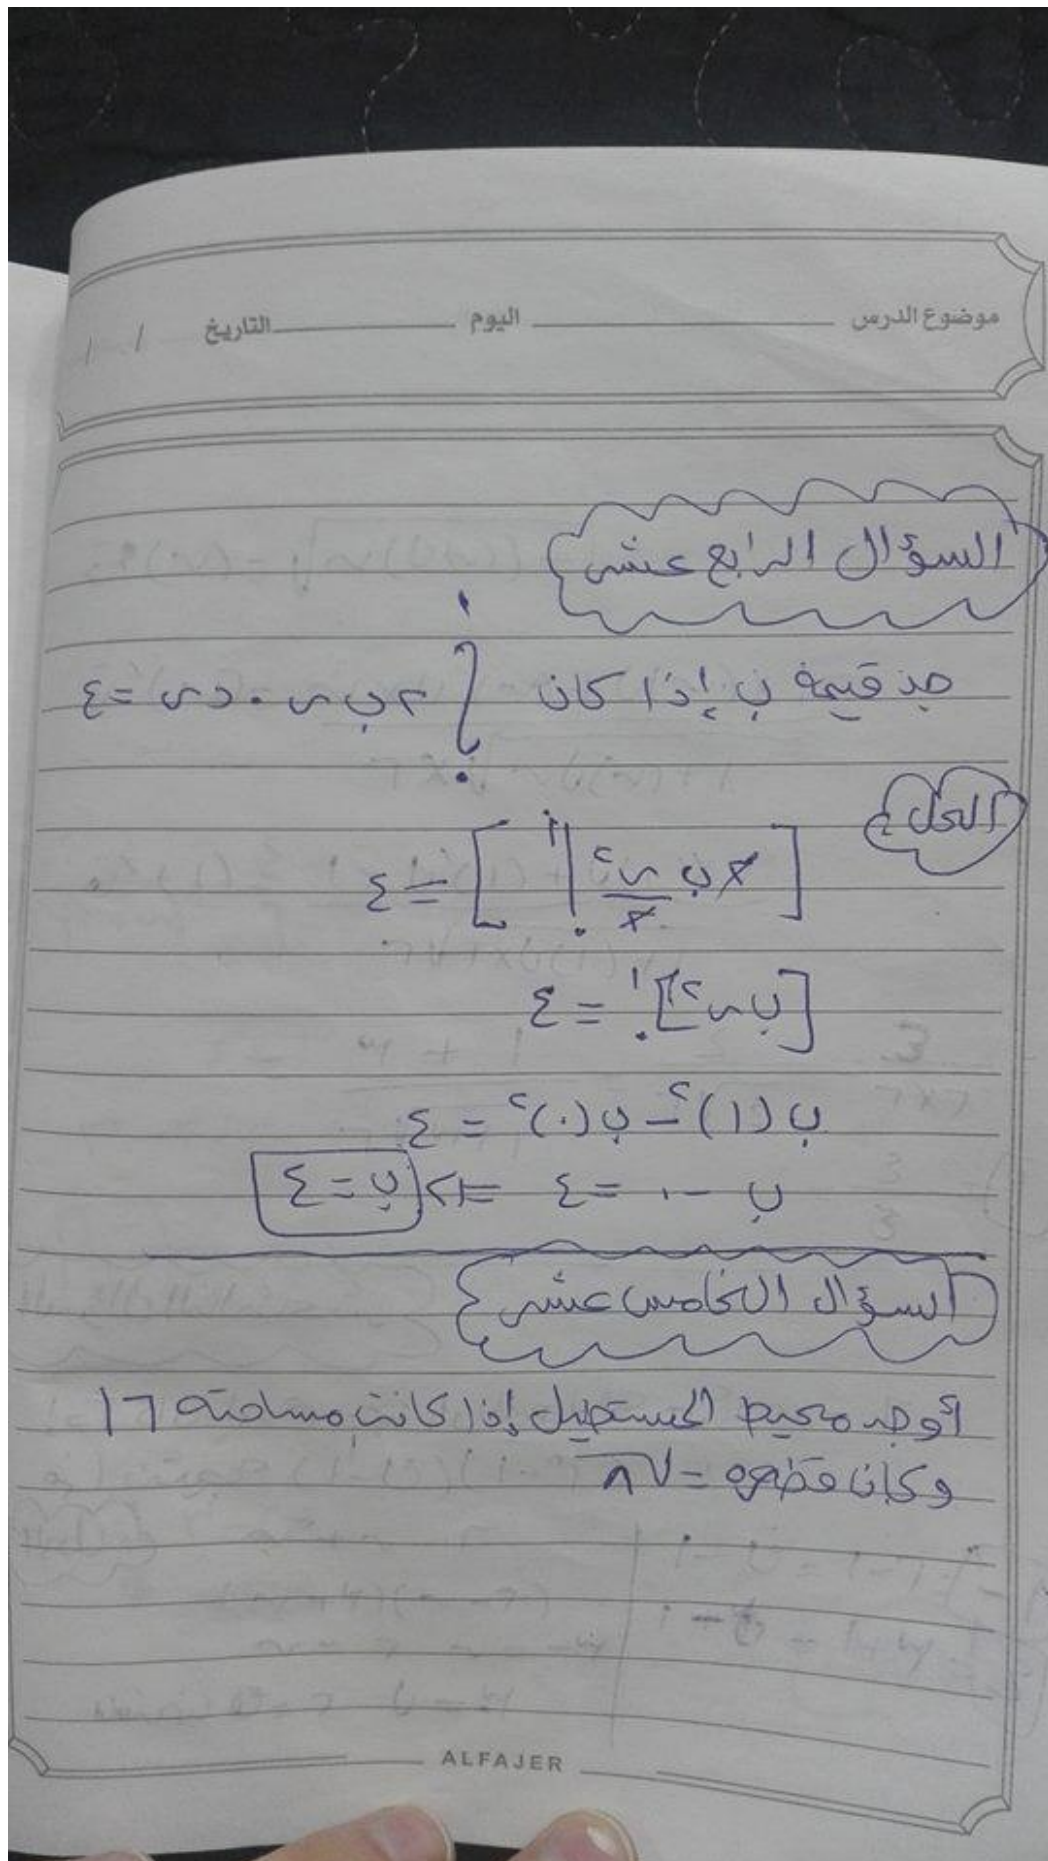 موضوع الدرس اليوم التاريخ / /
السؤال الرابع عشر
جد قيمة ب إذا كان ∫₀¹ ٢ ب س . دس = ٤
الحل
[٢ ب س٢ / ٢ |₀¹] = ٤
[ب س٢]₀¹ = ٤
ب (١)٢ - ب (٠)٢ = ٤
ب - ٠ = ٤ => ب = ٤
السؤال الخامس عشر
أوجد محيط المستطيل إذا كانت مساحته ١٦
وكان قطره = √٨
ALFAJER